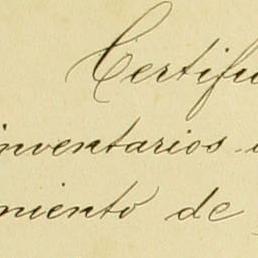 Certifi
inventarios
miento de